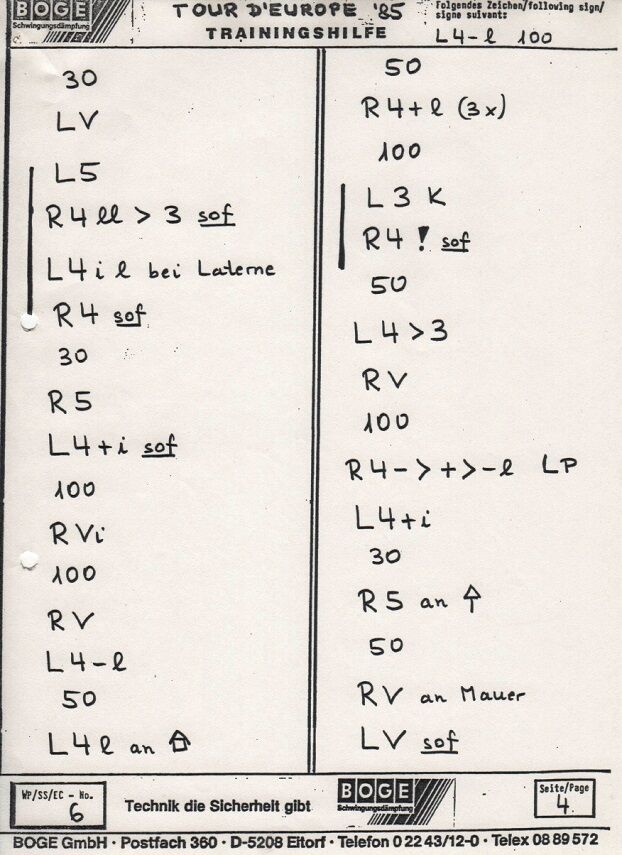 BOGE
Schwingungsdämpfung
TOUR D'EUROPE '85
TRAININGSHILFE
Folgendes Zeichen/following sign/
signe suivant:
L4-l 100
30
LV
L5
R4 ll > 3 sof
L4 i l bei Laterne
R4 sof
30
R5
L4+i sof
100
RVi
100
RV
L4-l
50
L4l an ⌂
50
R4+l (3x)
100
L3 K
R4 ! sof
50
L4>3
RV
100
R4->+>-l LP
L4+i
30
R5 an ↑
50
RV an Mauer
LV sof
WP/SS/EC - No.
6
Technik die Sicherheit gibt
BOGE
Schwingungsdämpfung
Seite/Page
4
BOGE GmbH · Postfach 360 · D-5208 Eitorf · Telefon 0 22 43/12-0 · Telex 08 89 572